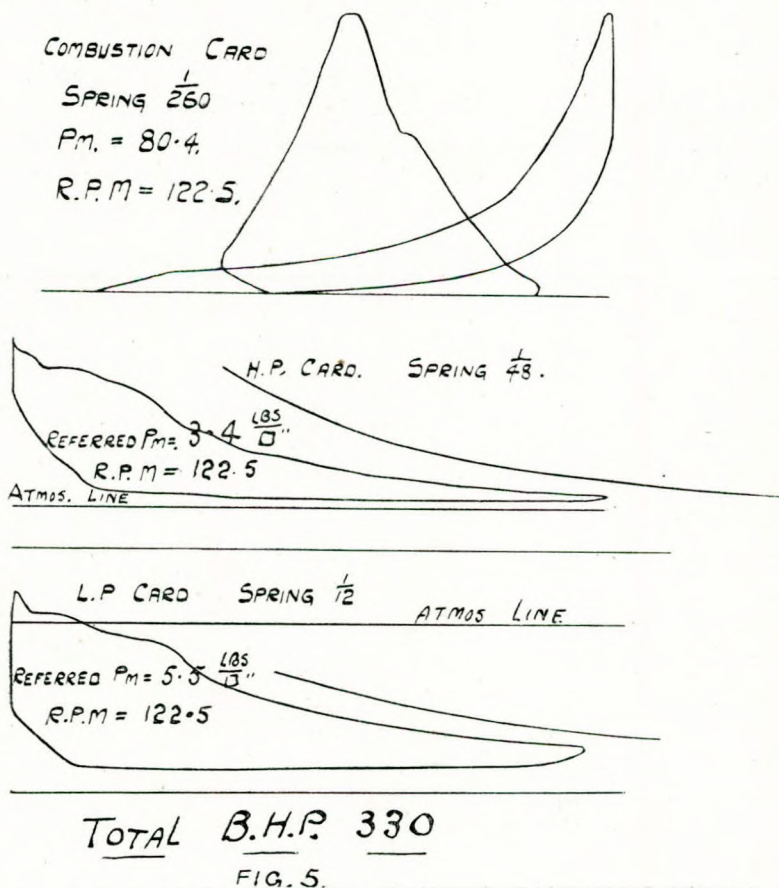 COMBUSTION CARD
SPRING 1/260
Pm. = 80·4.
R.P.M = 122·5.
H.P. CARD. SPRING 1/48.
REFERRED Pm= 3·4 LBS/□"
R.P.M = 122·5
ATMOS. LINE
L.P CARD SPRING 1/12
ATMOS LINE
REFERRED Pm= 5·5 LBS/□"
R.P.M = 122·5
TOTAL B.H.P. 330
FIG. 5.